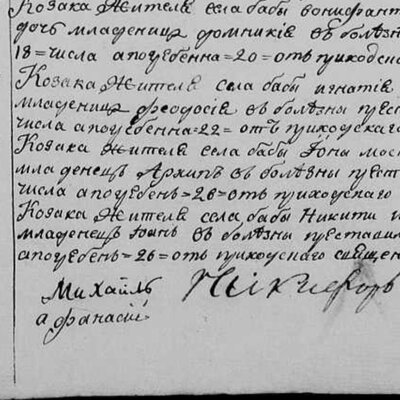 Козака Жителя села бабы вонифант
дочь младеница домникіѣ в болѣзн
18=числа апогребенна=20=отъ приходск
Козака Жителя села бабы игнатія
младеница феодосія въ болѣзны прест
числа апогребенна=22=отъ приходскаго
Козака Жителя села бабы Іоны мос
младенецъ Архипъ въ болѣзны прест
числа апогребенъ=26=отъ приходскаго
Козака Жителя села бабы Никити п
младенецъ Іоанъ въ болѣзны преставил
апогребенъ=26=отъ приходскаго священ
Михаилъ Никифоръ
афанасій